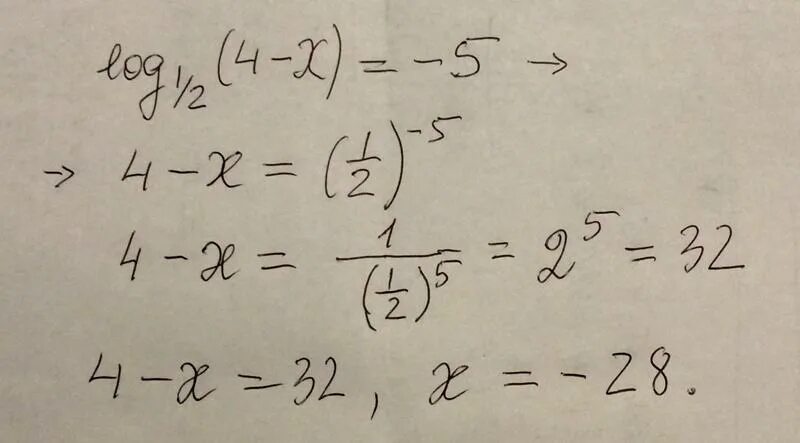 log₁/₂(4-x) = -5 →
→ 4-x = (1/2)⁻⁵
4-x = 1/(1/2)⁵ = 2⁵ = 32
4-x = 32, x = -28.